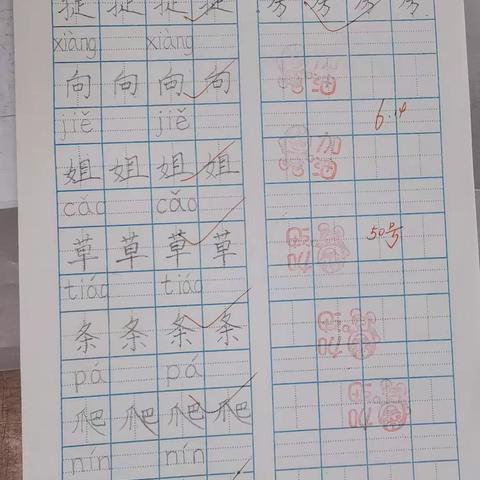 捉 捉 捉 捉
xiàng xiàng
向 向 向 向
jiě jiě
姐 姐 姐 姐
cǎo cǎo
草 草 草 草
tiáo tiáo
条 条 条 条
pá pá
爬 爬 爬 爬
nín nín
加油
6.14
加油
50号